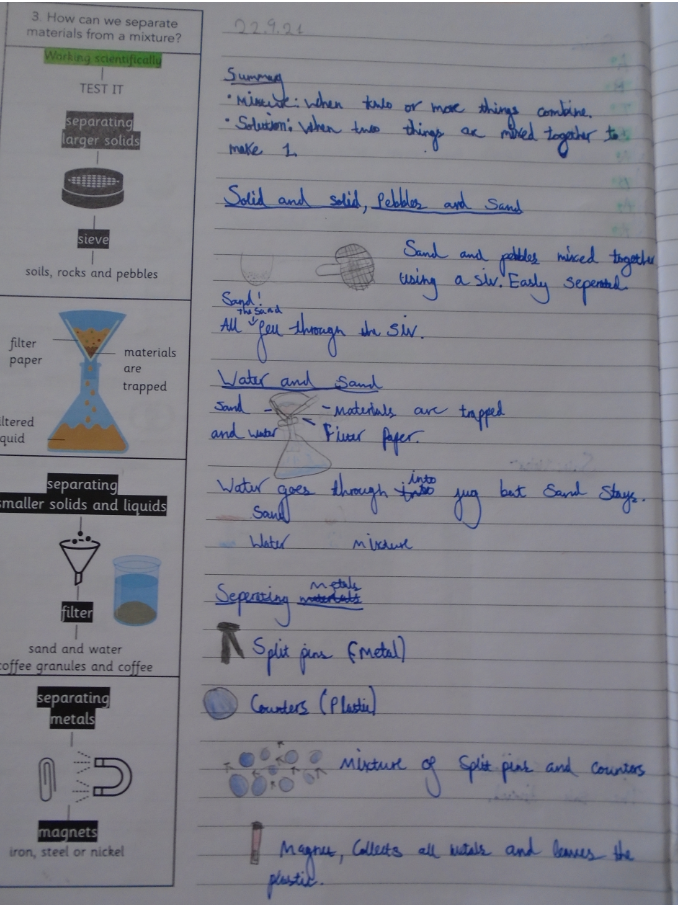 3. How can we separate
materials from a mixture?
Working scientifically
TEST IT
separating
larger solids
sieve
soils, rocks and pebbles
filter
paper
materials
are
trapped
ltered
quid
separating
smaller solids and liquids
filter
sand and water
coffee granules and coffee
separating
metals
magnets
iron, steel or nickel
22.9.21
Summary
• Mixture: When two or more things combine.
• Solution: When two things are mixed together to
make 1.
Solid and solid, Pebbles and Sand
Sand and pebbles mixed together
using a siv. Easly seperated.
Sand!
the sand
All fell through the siv.
Water and Sand
Sand
and water
- Materials are trapped
Filter Paper.
into
Water goes through jug but Sand Stays.
Sand
Water Mixture
Metals
Seperating materials
Split pins (Metal)
Counters (Plastic)
Mixture of Split pins and counters
Magnet, Collects all metals and leaves the
plastic.